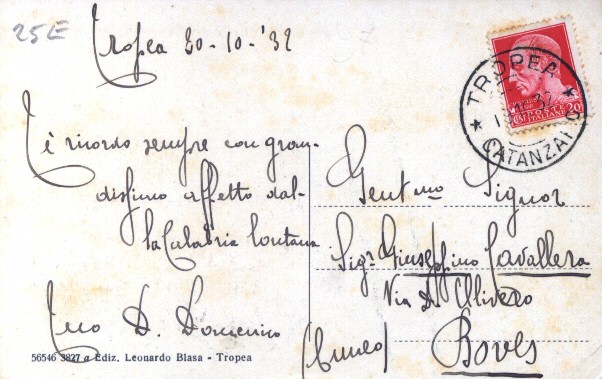 25E
Tropea 30-10-'32
Ti ricordo sempre con gran-
dissimo affetto dal-
la Calabria lontana
Tuo D. Domenico
56546 3827 a Ediz. Leonardo Blasa - Tropea
TROPEA
CATANZARO
POSTE
ITALIANE
20
Gent.mo Signor
Sigr Giuseppino Cavallera
Via D. Olivero
Boves
(Cuneo)